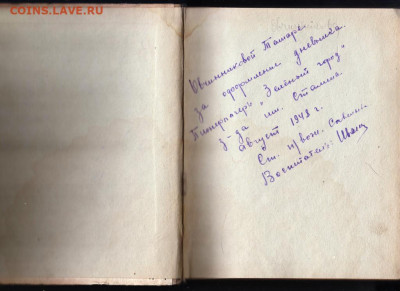 COINS.LAVE.RU
Овчинниковой Тамаре
за оформление дневника.
Пионерлагерь "Зелёный город"
з-да им. Сталина
август 1948 г.
Ст. п/вож.
Воспитатель: